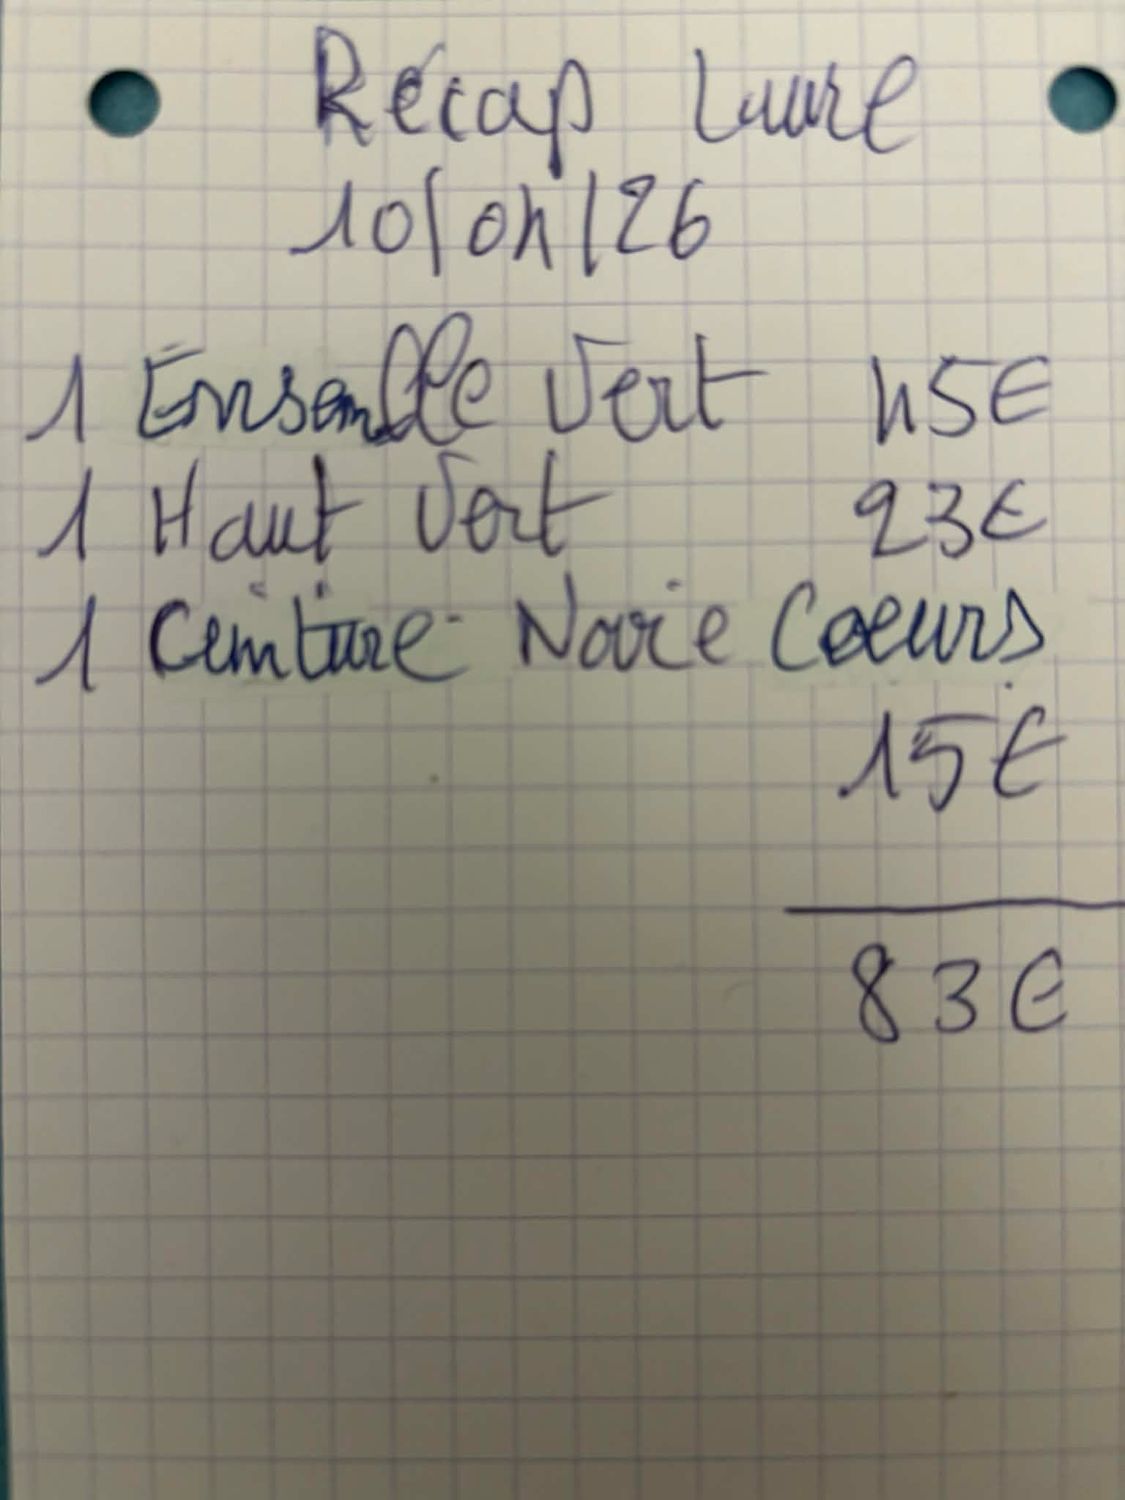 Récap Laure
10/04/26
1 Ensemble Vert 45€
1 Haut Vert 23€
1 Ceinture Noire Coeurs
15€
83€